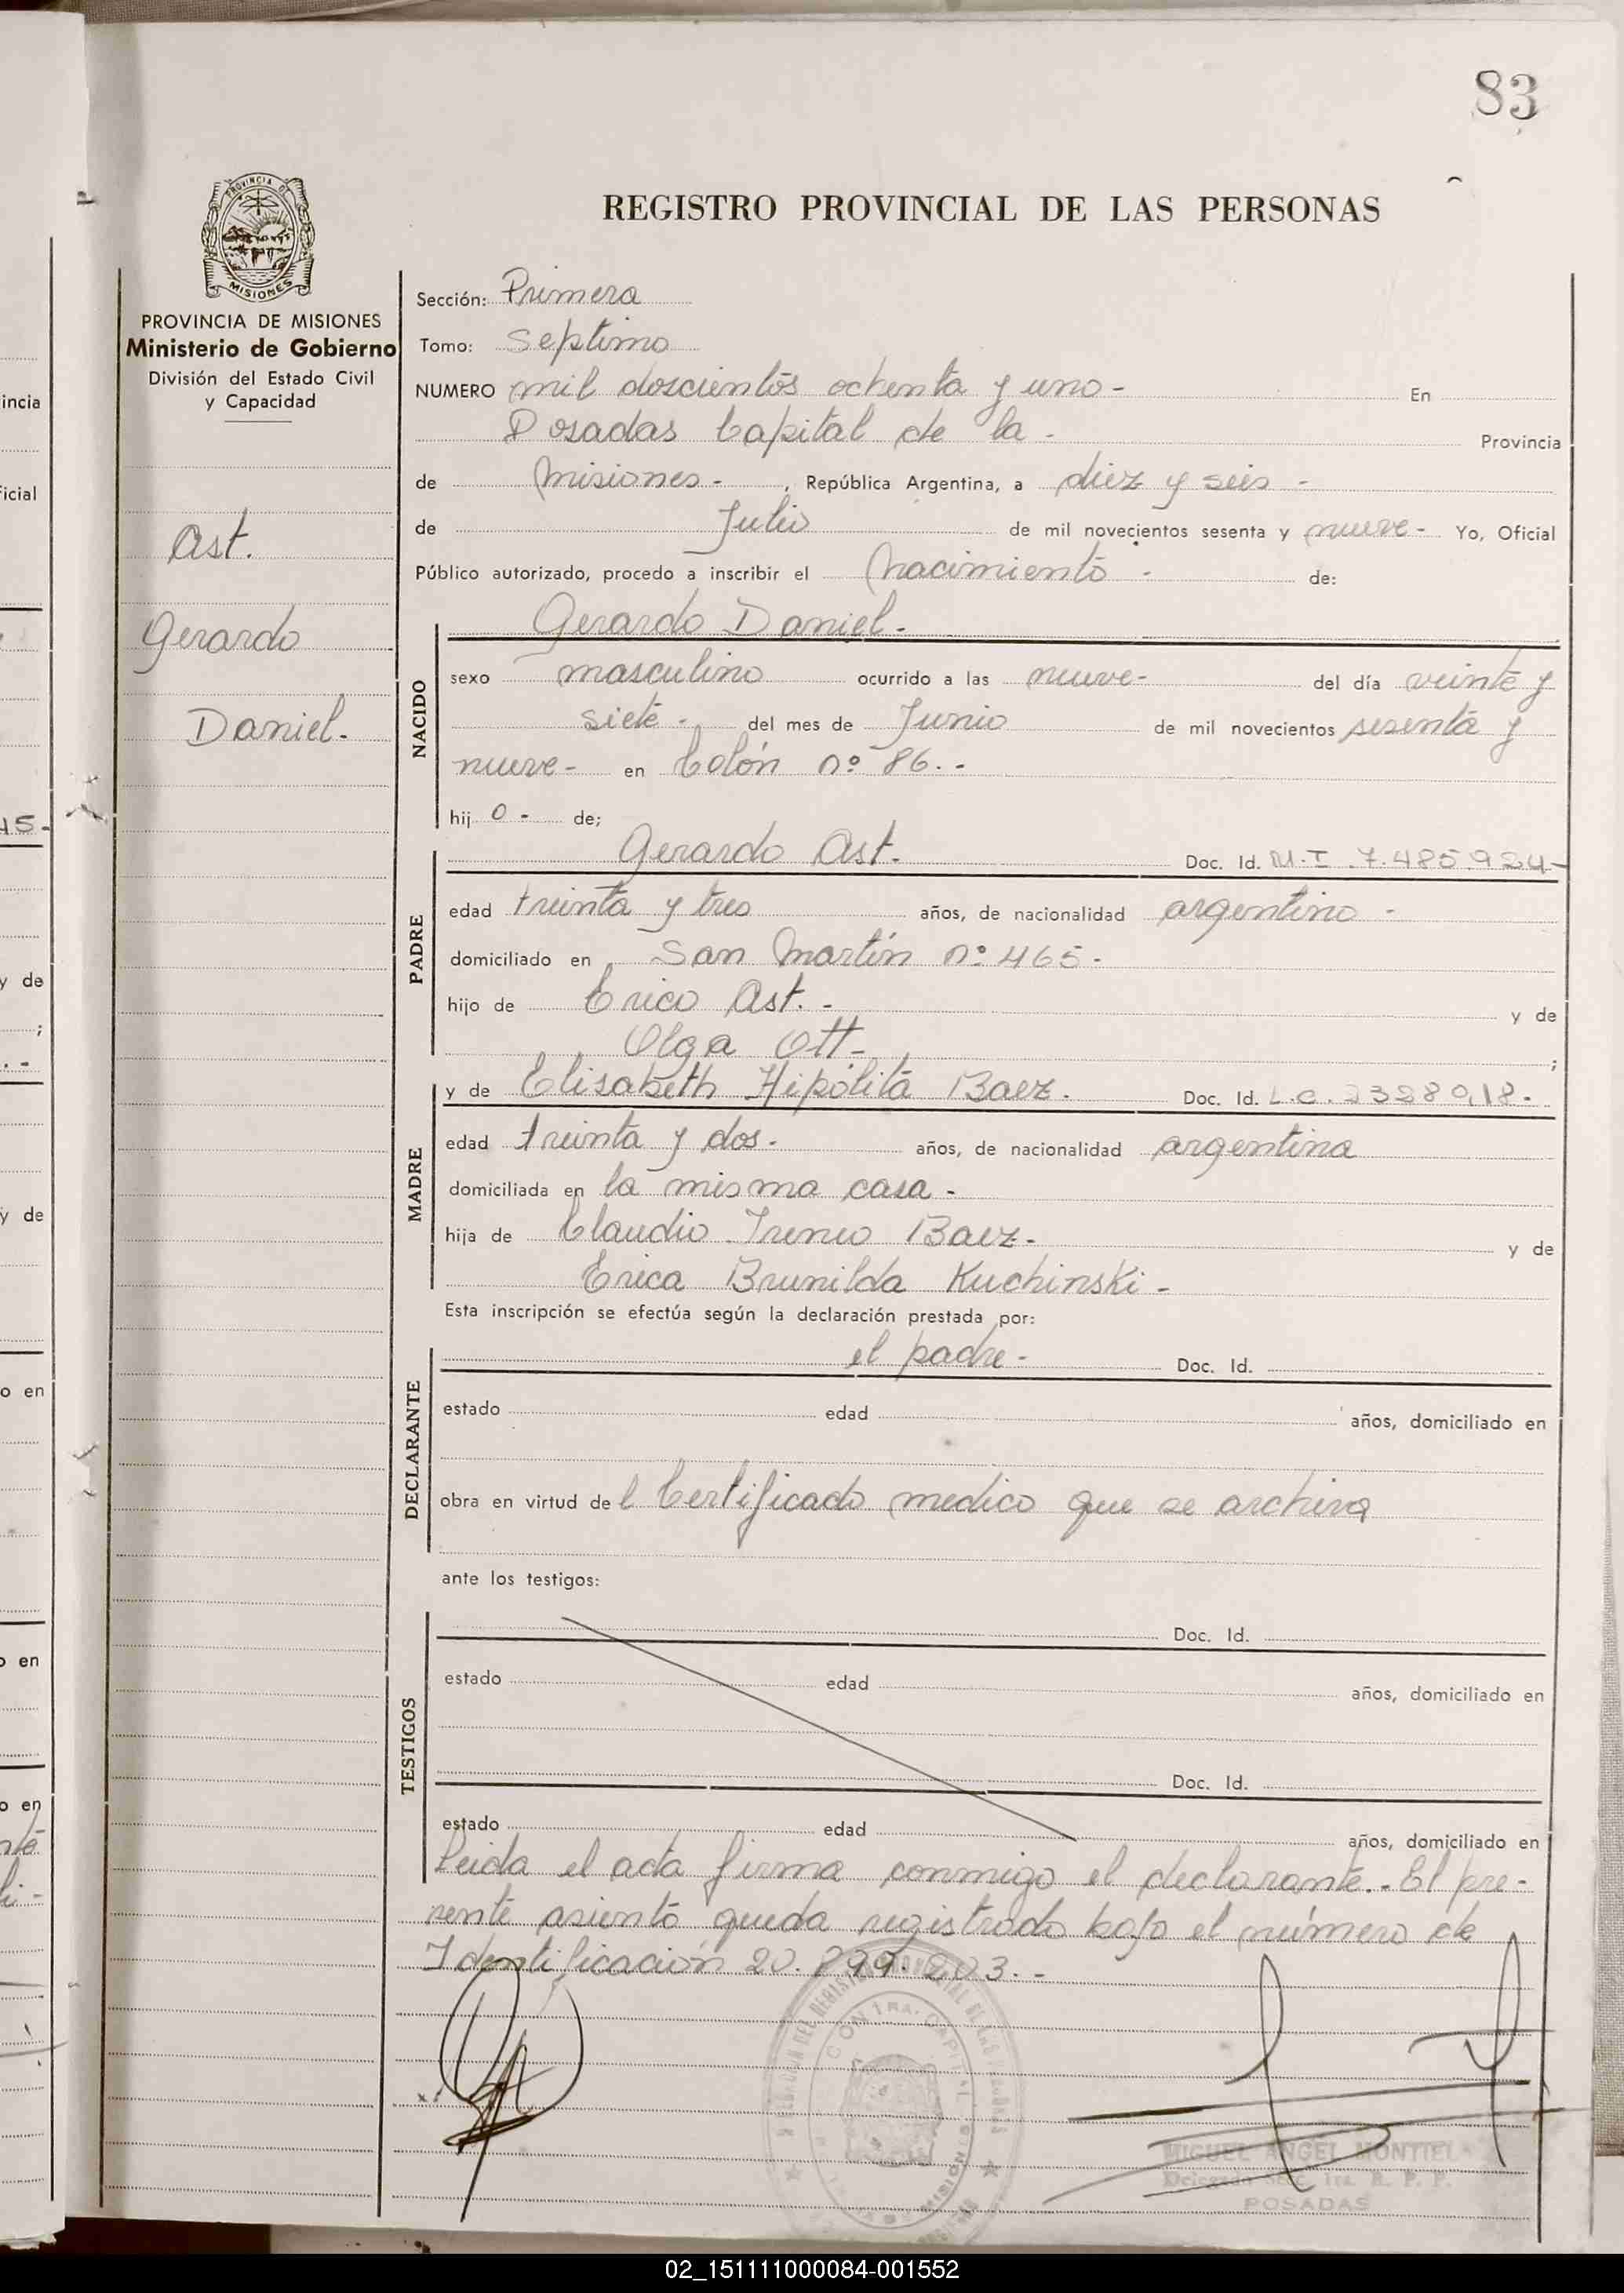 83
PROVINCIA DE
MISIONES
REGISTRO PROVINCIAL DE LAS PERSONAS
PROVINCIA DE MISIONES
Ministerio de Gobierno
División del Estado Civil
y Capacidad
Ast.
Gerardo
Daniel.-
Sección: Primera
Tomo: Septimo
NUMERO mil doscientos ochenta y uno - En
Posadas Capital de la - Provincia
de Misiones - , República Argentina, a diez y seis -
de Julio de mil novecientos sesenta y nueve - Yo, Oficial
Público autorizado, procedo a inscribir el nacimiento - de:
Gerardo Daniel.-
NACIDO
sexo masculino ocurrido a las nueve - del día veinte y
siete - del mes de Junio de mil novecientos sesenta y
nueve - en Colón nº 86. -
hij o - de;
Gerardo Ast. Doc. Id. M.I. 7.485.924-
PADRE
edad treinta y tres años, de nacionalidad argentino -
domiciliado en San Martín nº 465.
hijo de Erico Ast. - y de
Olga Ott- ;
y de Elisabeth Hipólita Baez. Doc. Id. L.C. 2328018.
MADRE
edad treinta y dos. años, de nacionalidad argentina
domiciliada en la misma casa -
hija de Claudio Ireneo Baez.- y de
Erica Brunilda Kuchinski -
Esta inscripción se efectúa según la declaración prestada por:
el padre - Doc. Id.
DECLARANTE
estado edad años, domiciliado en
obra en virtud de l Certificado medico que se archiva
ante los testigos:
TESTIGOS
Doc. Id.
estado edad años, domiciliado en
Doc. Id.
estado edad años, domiciliado en
Leida el acta firma conmigo el declarante.- El pre-
sente asiento queda registrado bajo el número de
Identificación 20.299.203.-
MIGUEL ANGEL MONTIEL
POSADAS
incia
icial
15-
y de
;
y de
o en
o en
o en
02_151111000084-001552